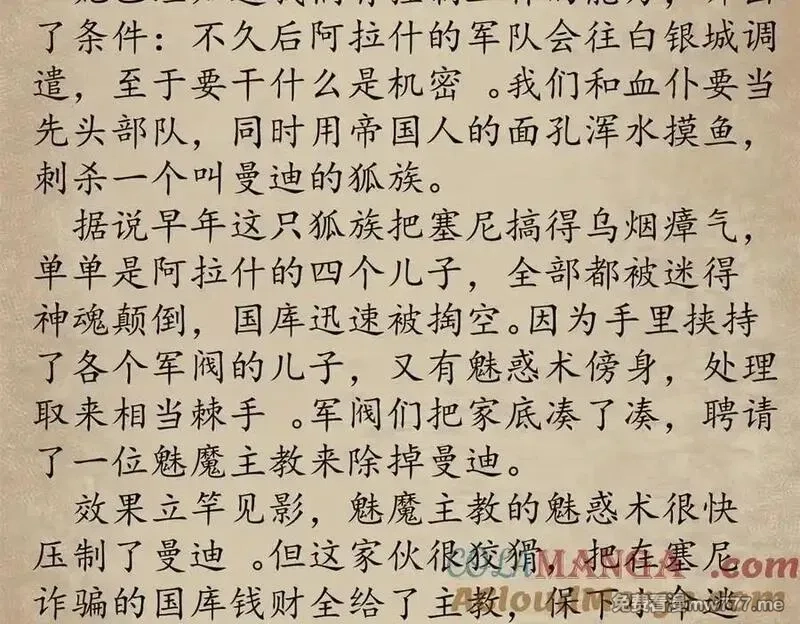 了条件：不久后阿拉什的军队会往白银城调
遣，至于要干什么是机密 。我们和血仆要当
先头部队，同时用帝国人的面孔浑水摸鱼，
刺杀一个叫曼迪的狐族。
据说早年这只狐族把塞尼搞得乌烟瘴气，
单单是阿拉什的四个儿子，全部都被迷得
神魂颠倒，国库迅速被掏空。因为手里挟持
了各个军阀的儿子，又有魅惑术傍身，处理
取来相当棘手 。军阀们把家底凑了凑，聘请
了一位魅魔主教来除掉曼迪。
效果立竿见影，魅魔主教的魅惑术很快
压制了曼迪 。但这家伙很狡猾，把在塞尼
诈骗的国库钱财全给了主教，保下小命逃
COLAMANGA.com
AllouManga.com
免费看漫mw177.me